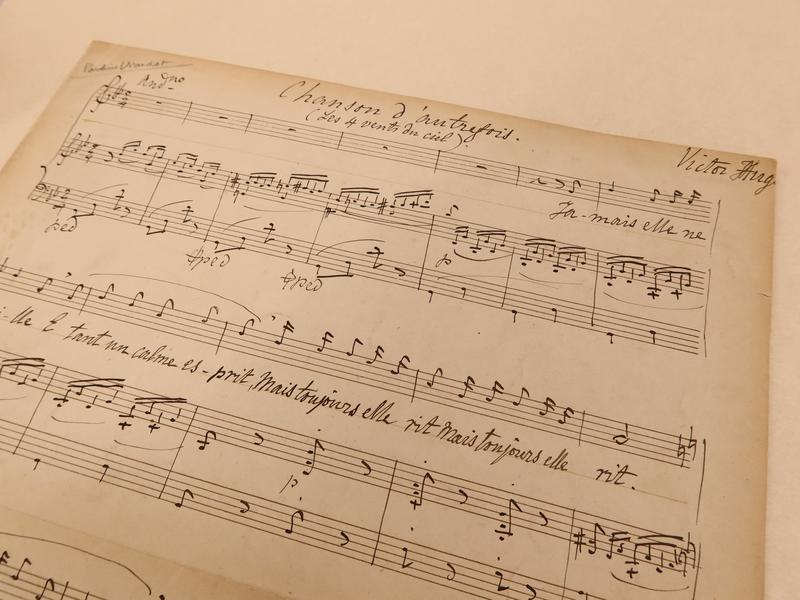 Pauline Viardot
Andno
Chanson d'autrefois.
(Les 4 vents du ciel)
Victor Hug
Ja-mais elle ne
ped
ped
ped
p
i-lle E tant un calme es-prit, Mais toujours elle rit Mais toujours elle rit.
p